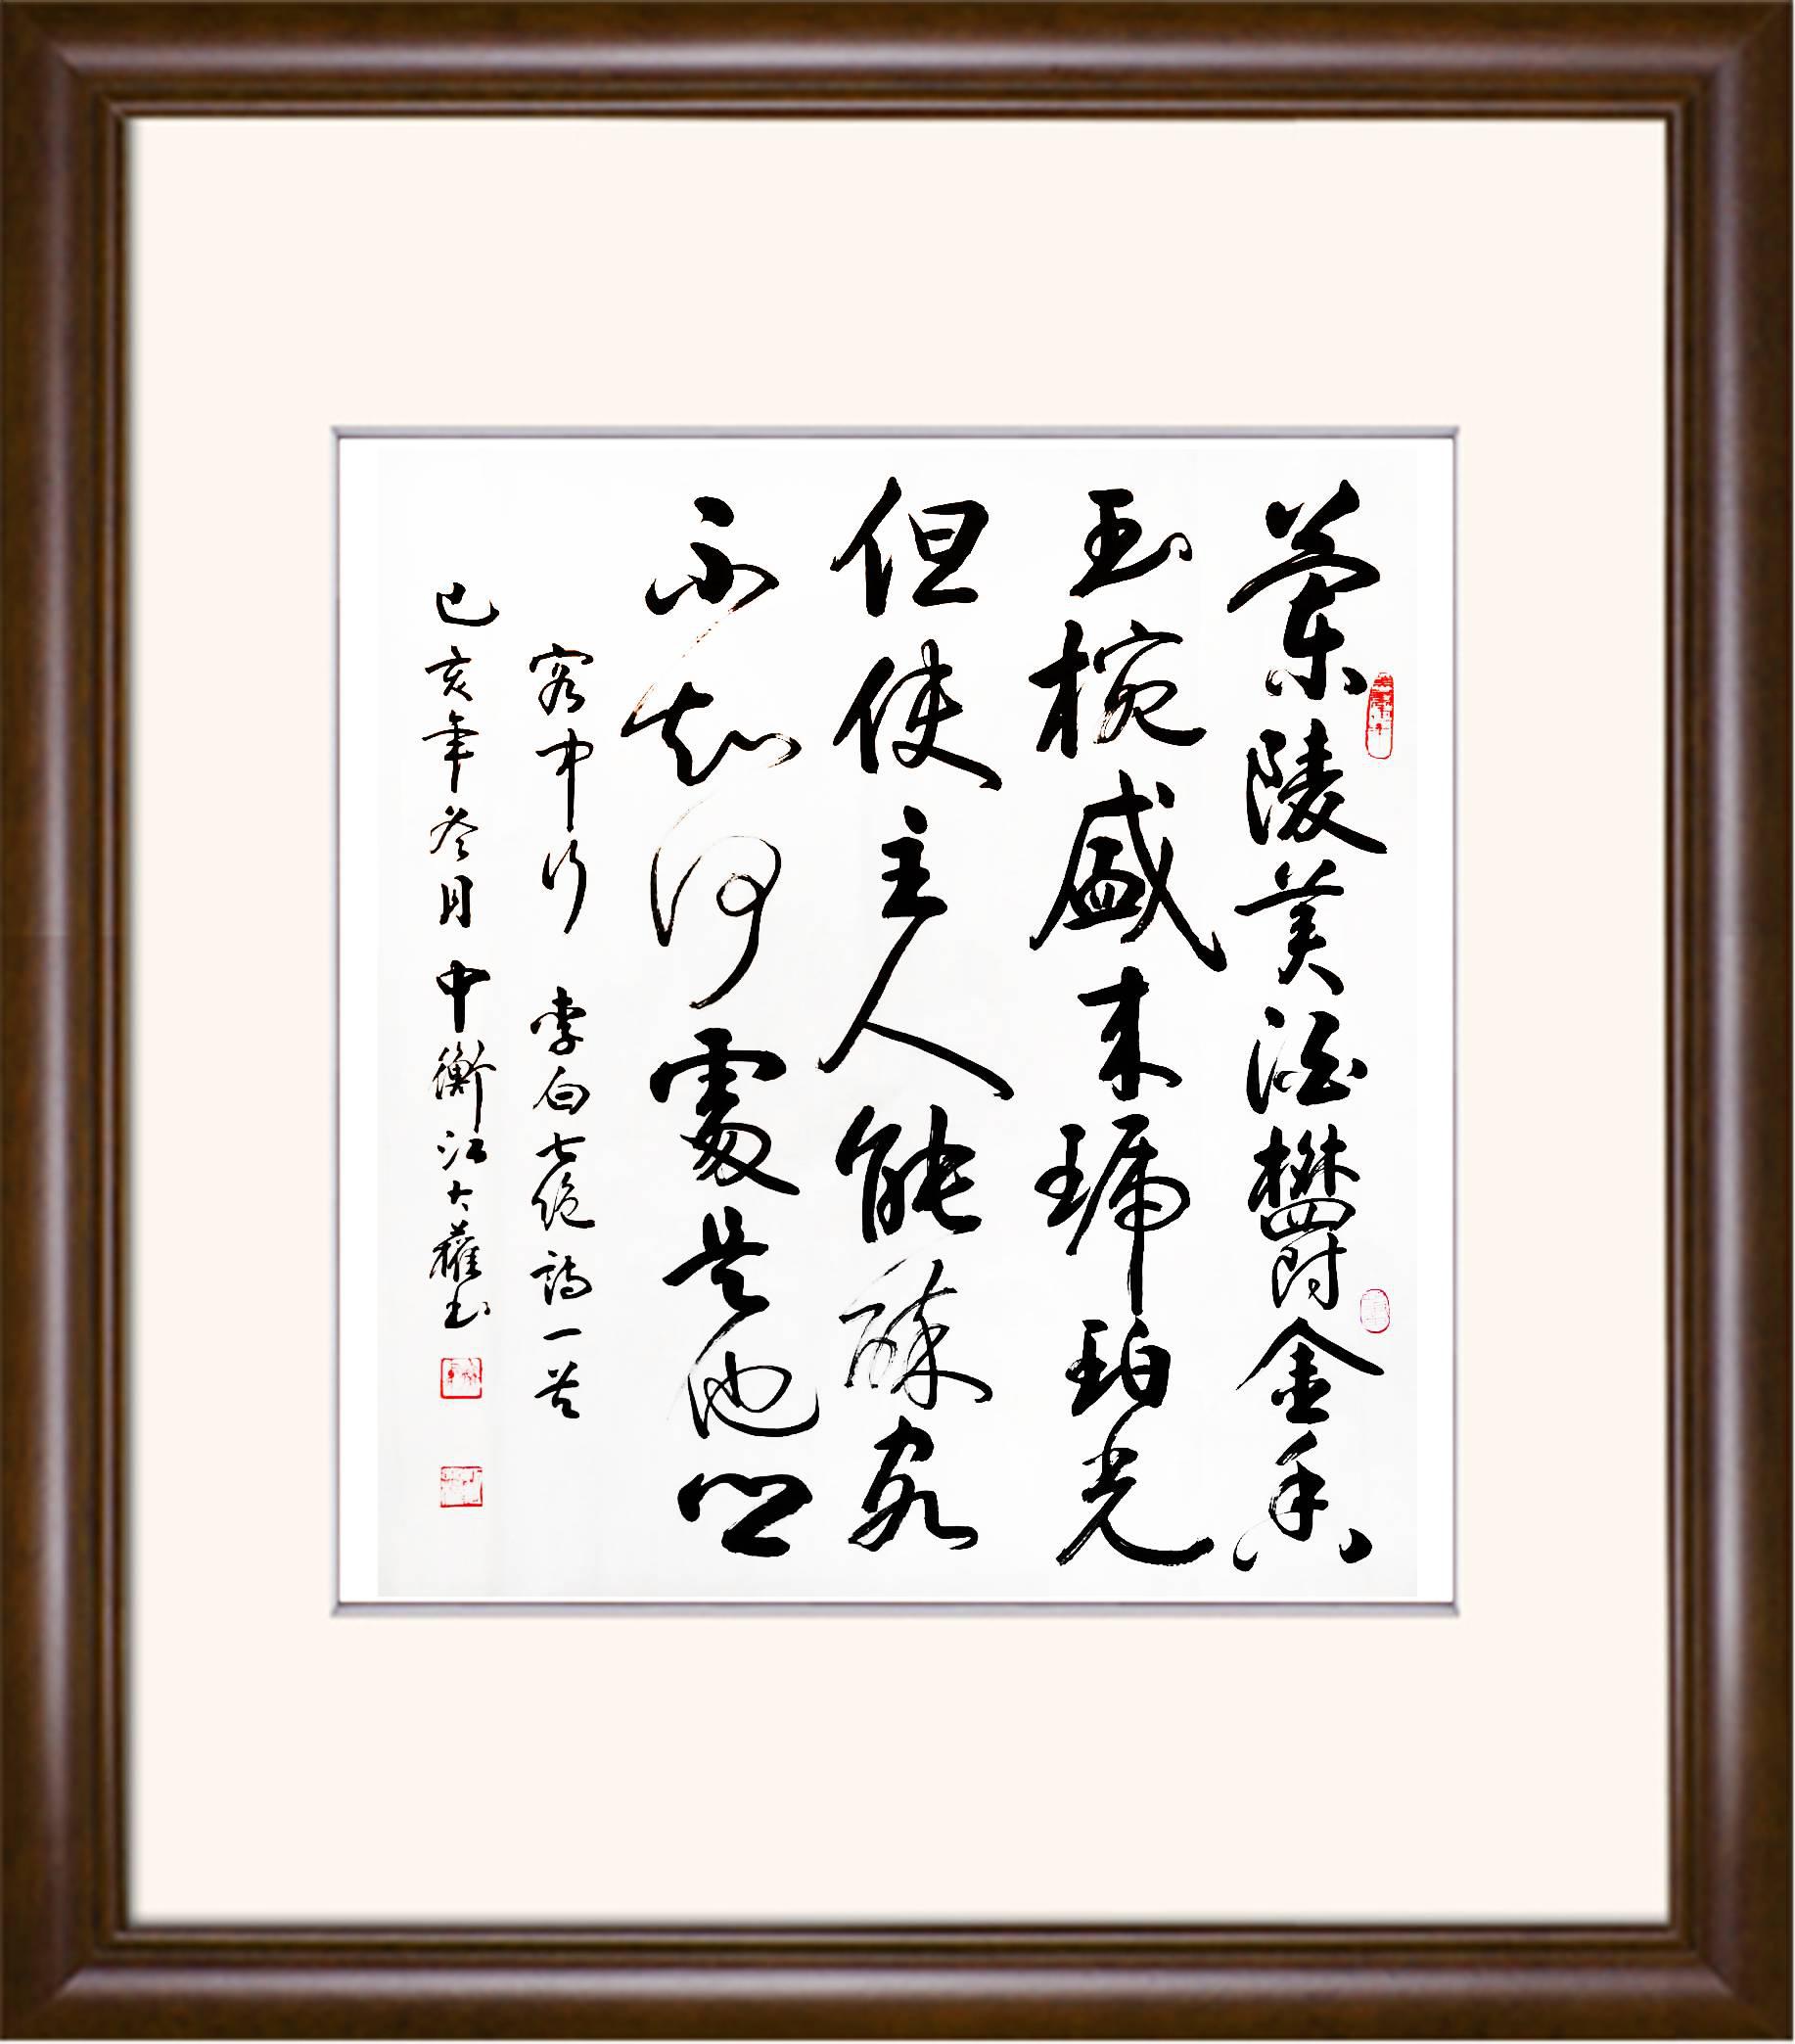 蘭陵美酒欝金香
玉椀盛来琥珀光
但使主人能醉客
不知何處是他鄉
客中行 李白七絶詩一首
己亥年冬月中衡江大權书